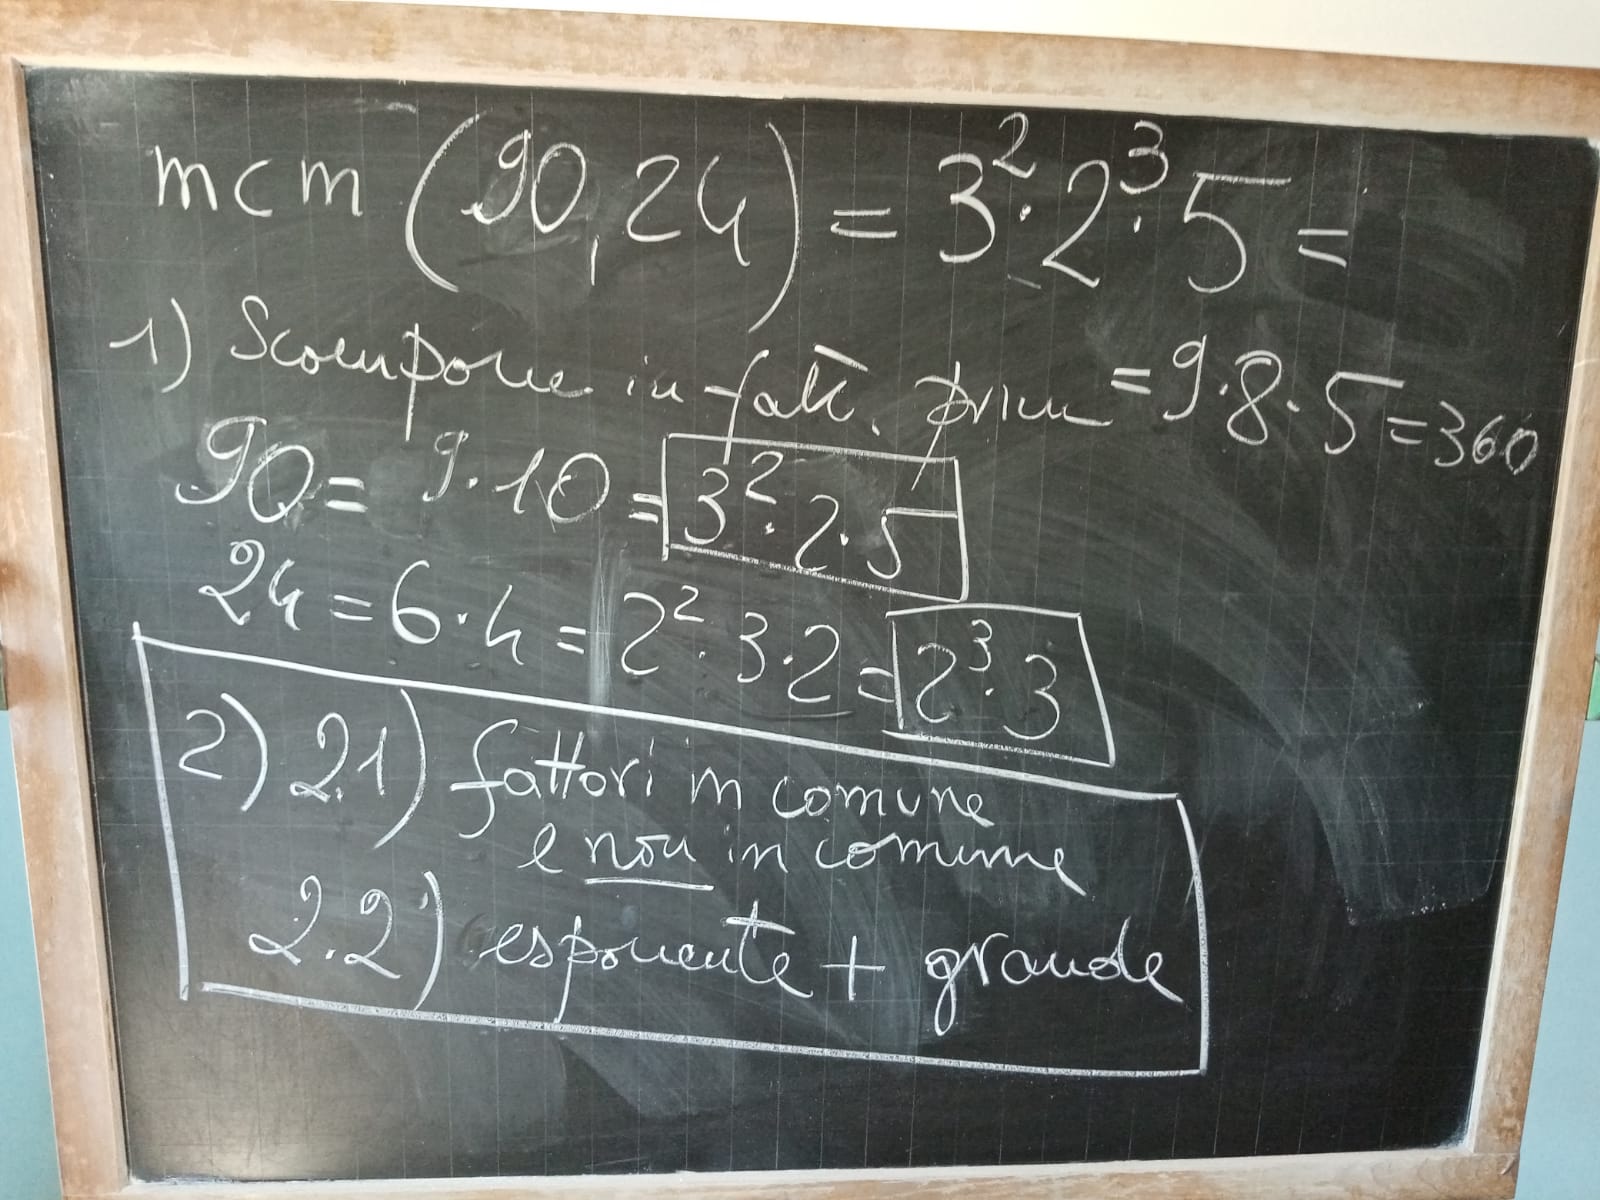 mcm (90,24) = 3²·2³·5 =
1) Scomporre in fatt. primi = 9·8·5=360
90= 9·10 = 3²·2·5
24=6·4= 2²·3·2=2³·3
2) 2.1) fattori in comune
e non in comune
2.2) esponente + grande